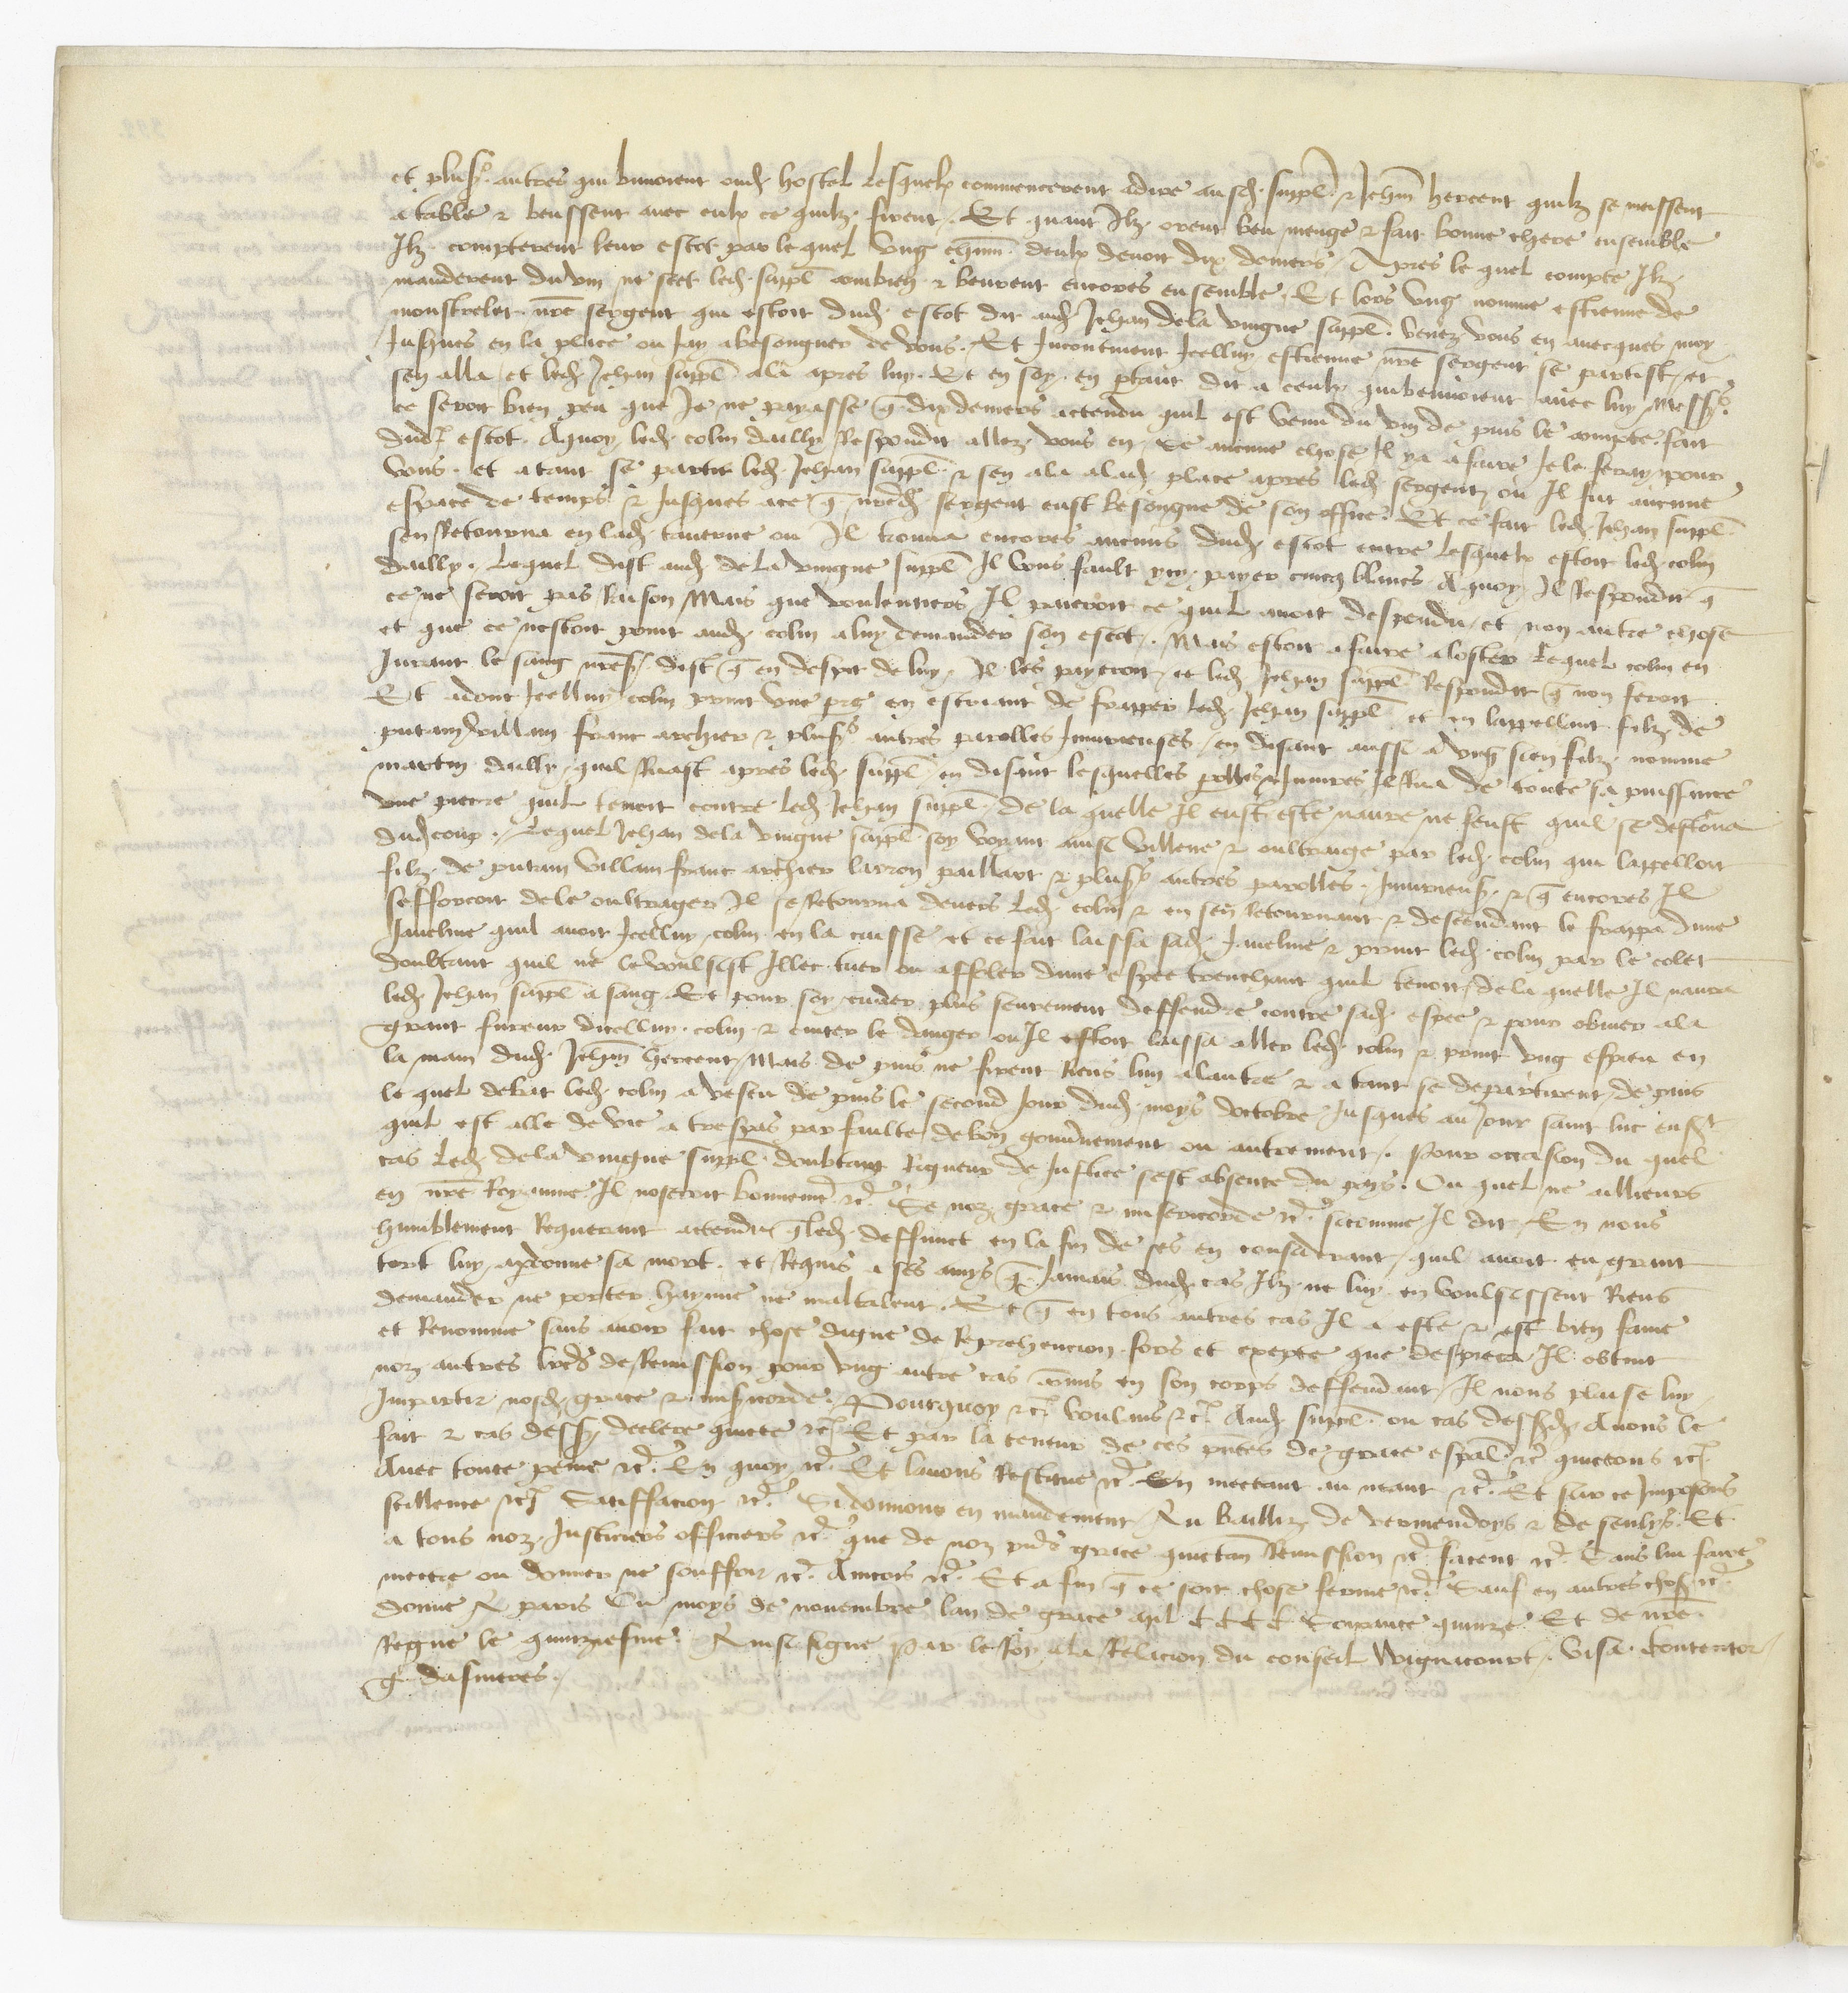 et plus. autres qui buvoient oud. hostel lesquelx commencerent a dire ausd. suppl. & Jehan hercent quilz se meissent
a table & beussent avec eulx ce quilz firent. Et quant Ilz orent beu menge & fait bonne chere ensemble
Ilz compterent leur escot par lequel ung chūn deulx devoit dix deniers. Apres lequel compte Ilz
manderent du vin ne scet led. suppl. combien & beurent encores ensemble. Et lors ung nomme estienne de
monstrelet nre sergent qui estoit dud. escot dit aud. Jehan dela vingne suppl. venez vous en avecques moy
Jusques en la place ou Jay abesongner de vous. Et Incontinent Icelluy estienne nre sergent se partist et
sen alla et led. Jehan suppl. ala apres luy. Et en soy en ptant dit a ceulx qui buvoient avec luy Mess.
ce seroit bien peu que Je ne payasse q dix deniers actendu quil est venu du vin de puis le compte fait
dud. escot. Aquoy led. colin dailly Respondit allez vous en se aucune chose Il ya afaire Je le feray pour
vous. et atant se partit led. Jehan suppl. & sen ala alad. place apres led. sergent ou Il fut aucune
espace de temps & Jusques ace q nred. sergent eust besongne de son office. Et ce fait led. Jehan suppl.
sen Retourna en lad. taverne ou Il trouva encores aucuns dud. escot entre lesquelx estoit led. colin
dailly. Lequel dist aud. dela vingne suppl. Il vous fault icy payer cincq blancs. Aquoy Il Respondit q
ce ne seroit pas Raison Mais que voulentiers Il paieroit ce quil avoit despendu et non autre chose
et que ce nestoit point aud. colin aluy demander son escot. Mais estoit afaire aloste Lequel colin en
Jurant le sang nres. dist q en despit de luy Il les payeroit et led. Jehan suppl. Respondit q non feroit
Et adonc Icelluy colin print une prē en escriant de frapper led. Jehan suppl. et en lappellant filz de
putain villain franc archier & plus. autres parolles Injurieuses en disant aussi a ung sien filz nomme
martin dailly quil Ruast apres led. suppl. en disant lesquelles polles & Injures Il Rua de toute sa puissance
une pierre quil tenoit contre led. Jehan suppl. de la quelle Il eust este navre ne feust quil se destourna
dud. coup. Lequel Jehan dela vingne suppl. soy voyant ainsi villene & oultraige par led. colin qui lappelloit
filz de putain villain franc archier larron paillart & plus. autres parolles Injurieus. & q encores Il
sefforcoit dele oultrager Il se Retourna devers led. colin & en sen Retournant & descendant le frappa dune
Javeline quil avoit Icelluy colin en la cuisse et ce fait laissa sad. Javeline & print led. colin par le colet
doubtant quil ne levoulsist Illec tuer ou affoler dune espee trenchant quil tenoit de la quelle Il navra
led. Jehan suppl. a sang. Et pour soy cuider plus seurement deffendre contre sad. espee & pour obvier ala
grant fureur dicelluy colin & eviter le danger ou Il estoit laissa aller led. colin & print ung espieu en
la main dud. Jehan hercent Mais de puis ne firent Riens lun alautre & a tant se departirent de puis
le quel debat led. colin a vescu de puis le second Jour dud. moys doctobre Jusques au Jour saint luc ens.
quil est alle de vie a trespas par faulte de bon gouvnement ou autrement. Pour occasion du quel
cas led. dela vingne suppl. doubtant Rigueur de Justice sest absente du pays. Ou quel ne aillieurs
en nre Royaume Il noseroit bonnemēt &c. Se noz grace & misericorde &c. sicomme Il dit En nous
humblement Requerant actendu q led. deffunct en la fin de ses en considerant quil avoit eu grant
tort luy apdonne sa mort. et Requis a ses amys q Jamais dud. cas Ilz ne luy en voulsissent Riens
demander ne porter hayne ne maltalent. Et q en tous autres cas Il a este & est bien fame
et Renomme sans avoir fait chose digne de Reprehencion fors et excepte que despieca Il obtint
noz autres lrēs de Remission pour ung autre cas cōmis en son corps deffendant Il nous plaise luy
Impartir nosd. grace & misicorde. Pourquoy &c. voulans &c. Aud. suppl. ou cas dessusd. Avons le
fait & cas dess. declere quicte &c. Et par la teneur de ces pntes de grace espal. &c. quictons &c.
Avec toute peine &c. En quoy &c. Et lavons Restitue &c. En mectant au neant &c. Et sur ce Imposons
scillence &c. Satiffacion &c. Si donnons en mandement Au Bailliz de vermendoys & de senlis. Et
a tous noz Justiciers officiers &c. que de noz pns grace quictan Remission &c. facent &c. Sans luy faire
mectre ou donner ne souffrir &c. Aincois &c. Et a fin q ce soit chose ferme &c. Sauf en autres chos. &c.
donne A paris Ou moys de novembre lan de grace mil CCCC soixante quinze Et de nre
Regne le quinziesme. Ainsi signe Par le Roy ala Relacion du conseil Wignicourt. Visa. Contentor
g. dasnieres.